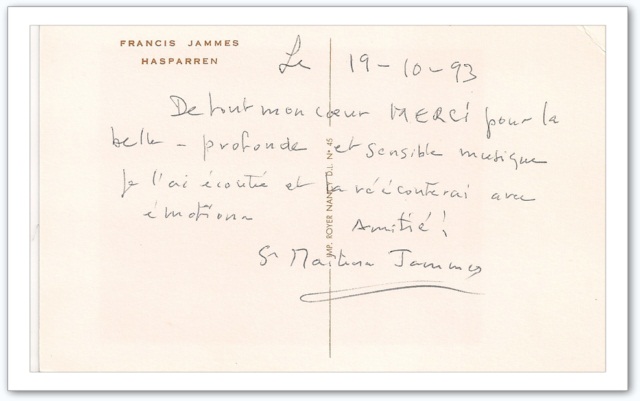 FRANCIS JAMMES
HASPARREN
Le 19-10-93
De tout mon cœur MERCi pour la
belle - profonde et sensible musique
Je l'ai écoutée et la réécouterai avec
émotion
Amitié !
Sr Maitena Jammes
IMP. ROYER NANCY D.L. N° 45